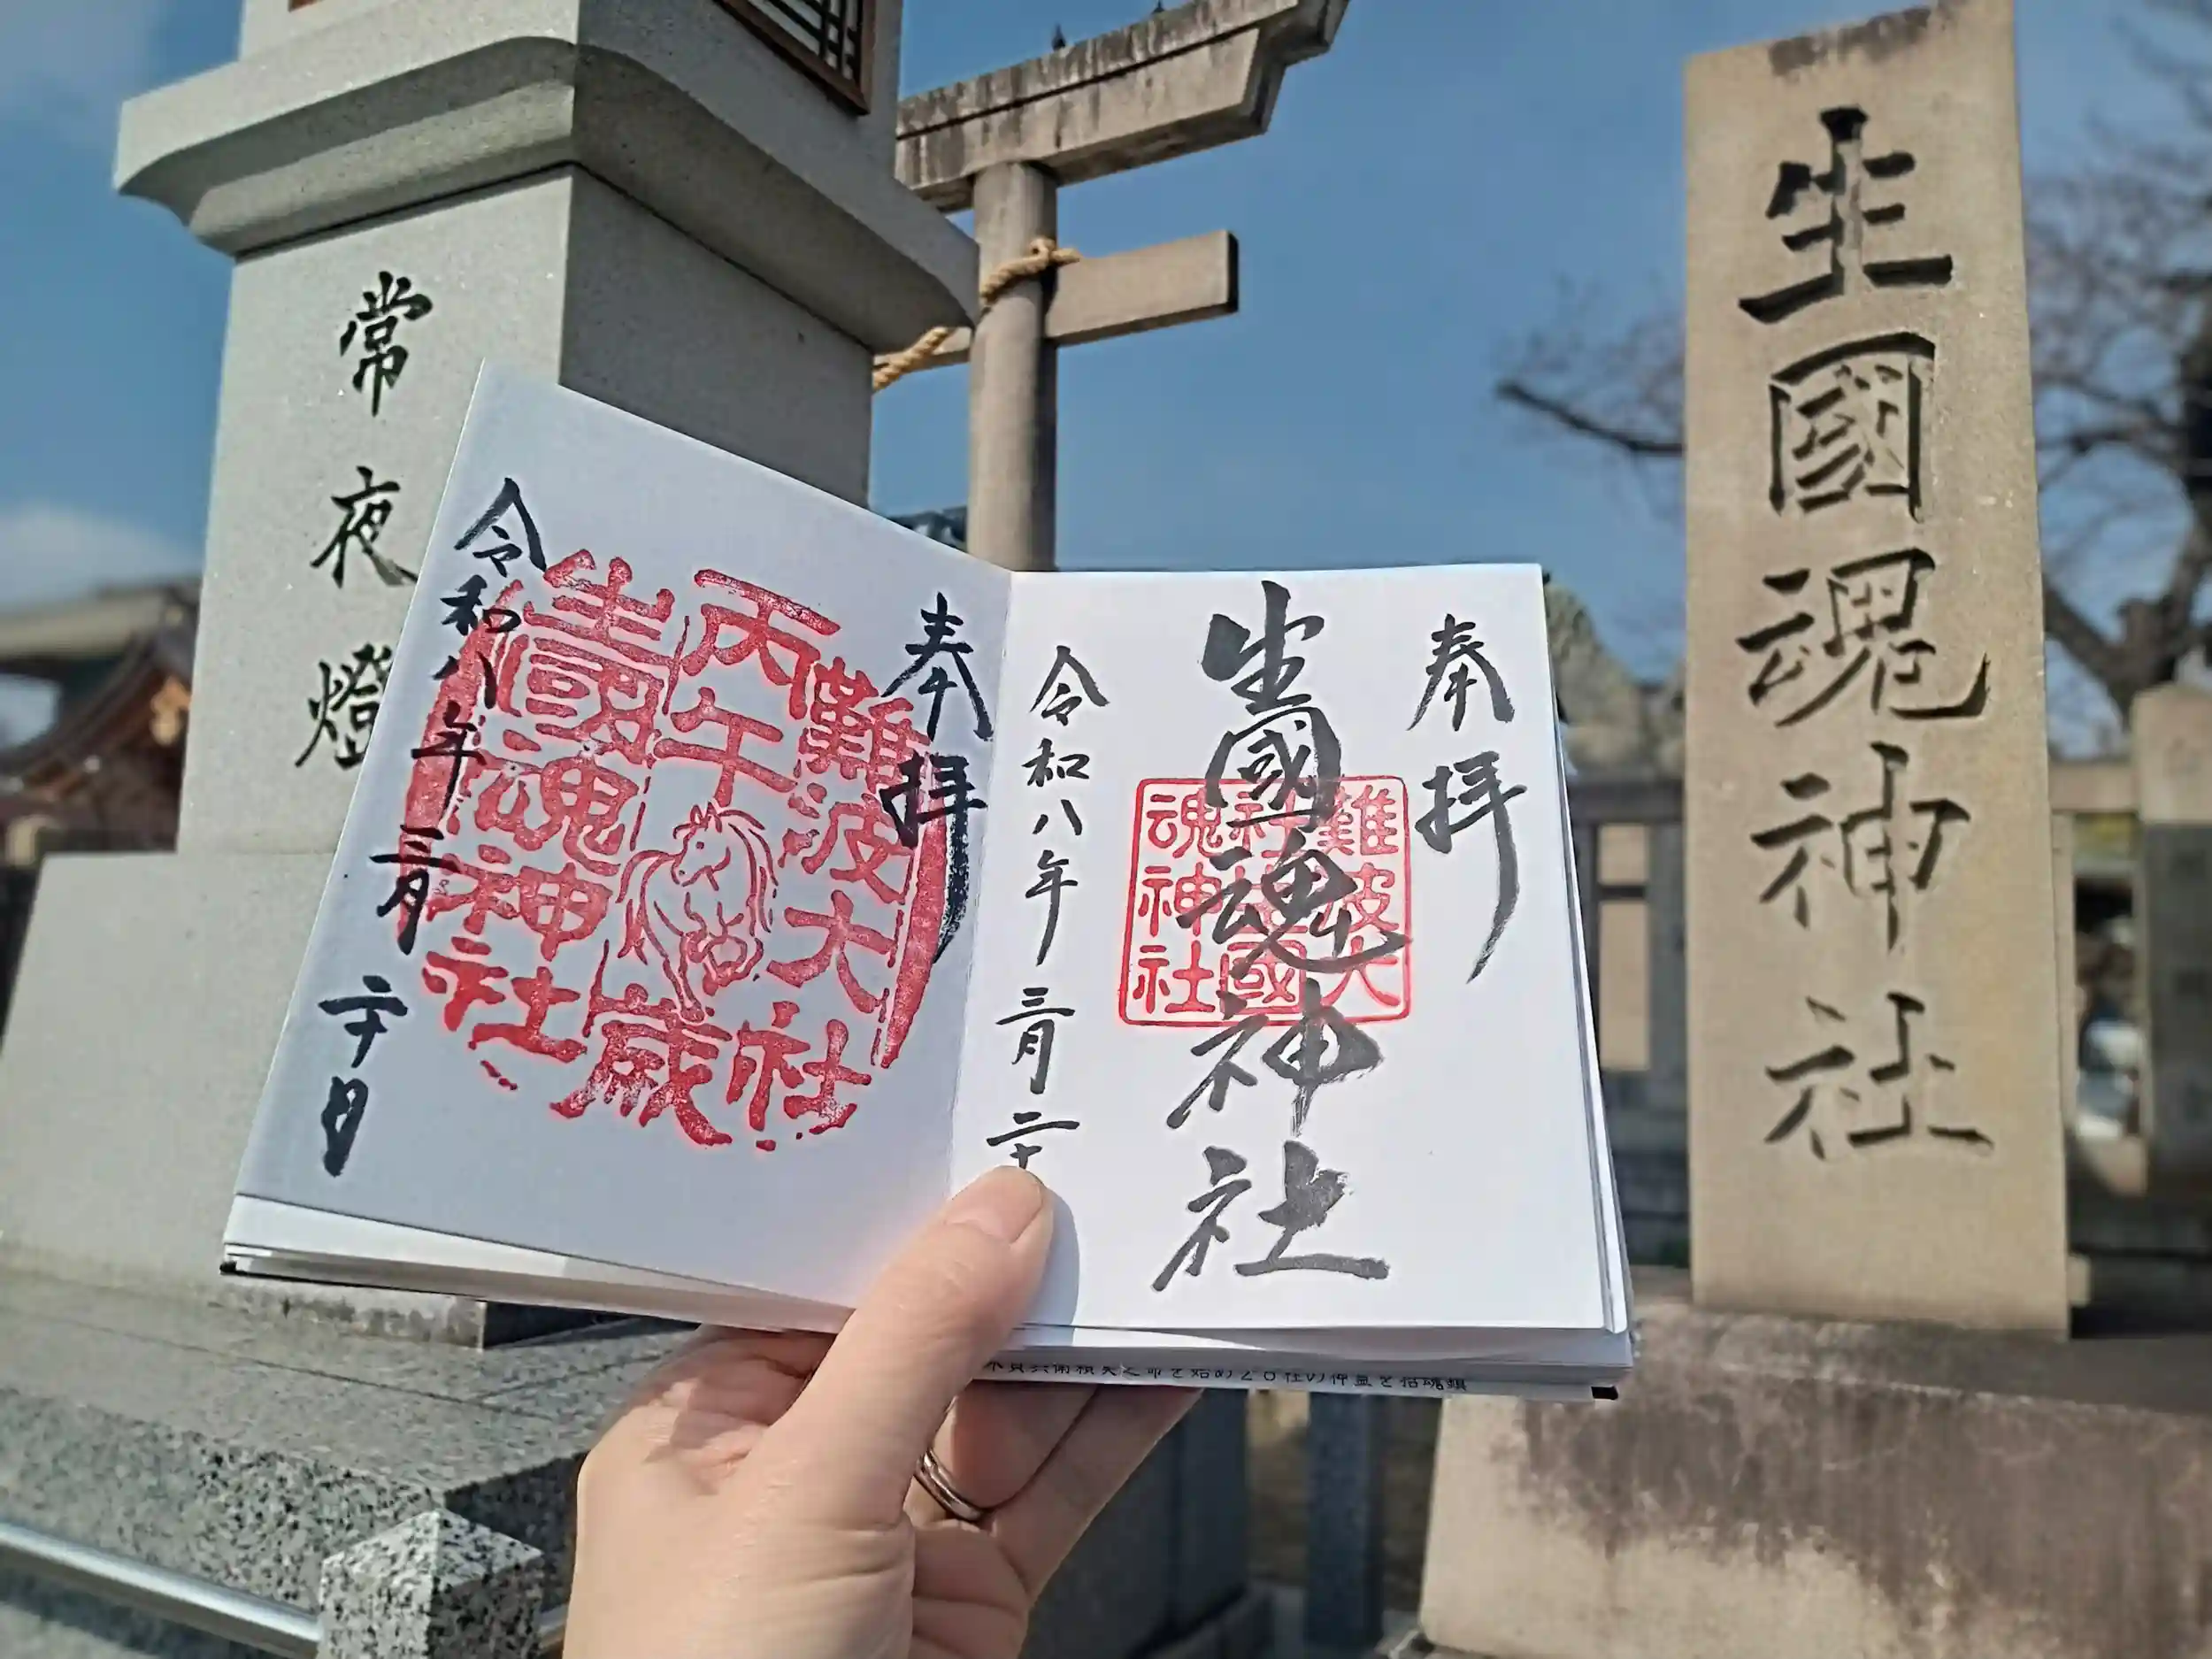 生國魂神社
奉拝
生國魂神社
難波大
社生國
魂神社
令和八年三月二十
奉拝
難波大社
丙午歳
生國魂神社
令和八年三月二十日
常夜燈